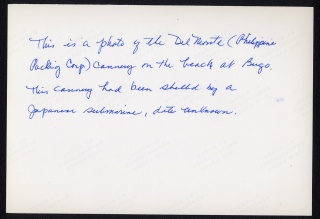 This is a photo of the Del Monte (Philippine
Packing Corp) cannery on the beach at Bugo.
This cannery had been shelled by a
Japanese submarine, date unknown.